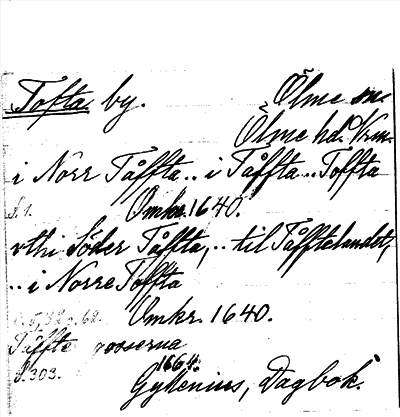 Tofta by. Ölme sn.
Ölme hd. Vrm.
i Norr Tåffta.. i Tåffta.. Toffta
S. 1. Omkr. 1640.
vthi Söder Tåffta,.. til Tåfftelandet,
.. i Norre Toffta
62. Omkr. 1640.
Tåffte
S. 303. 1664.
Gyllenius, Dagbok.